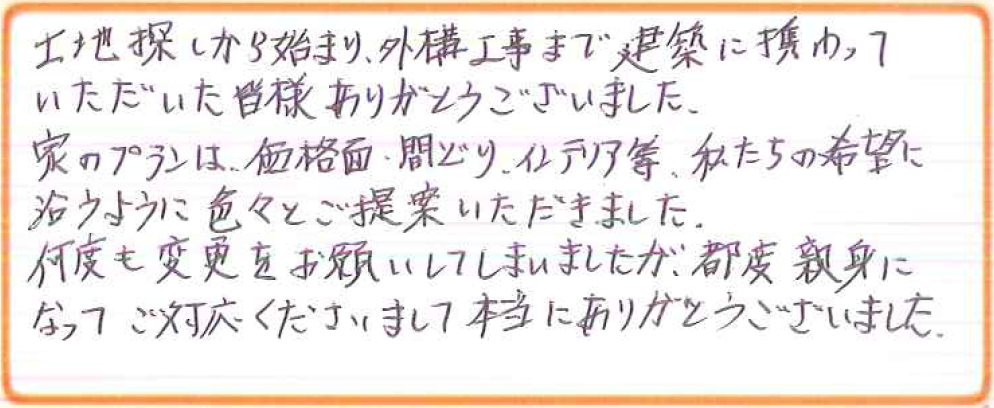 土地探しから始まり、外構工事まで建築に携わって
いただいた皆様ありがとうございました。
家のプランは、価格面・間どり、インテリア等、私たちの希望に
沿うように色々とご提案いただきました。
何度も変更をお願いしてしまいましたが、都度親身に
なってご対応くださいまして本当にありがとうございました。